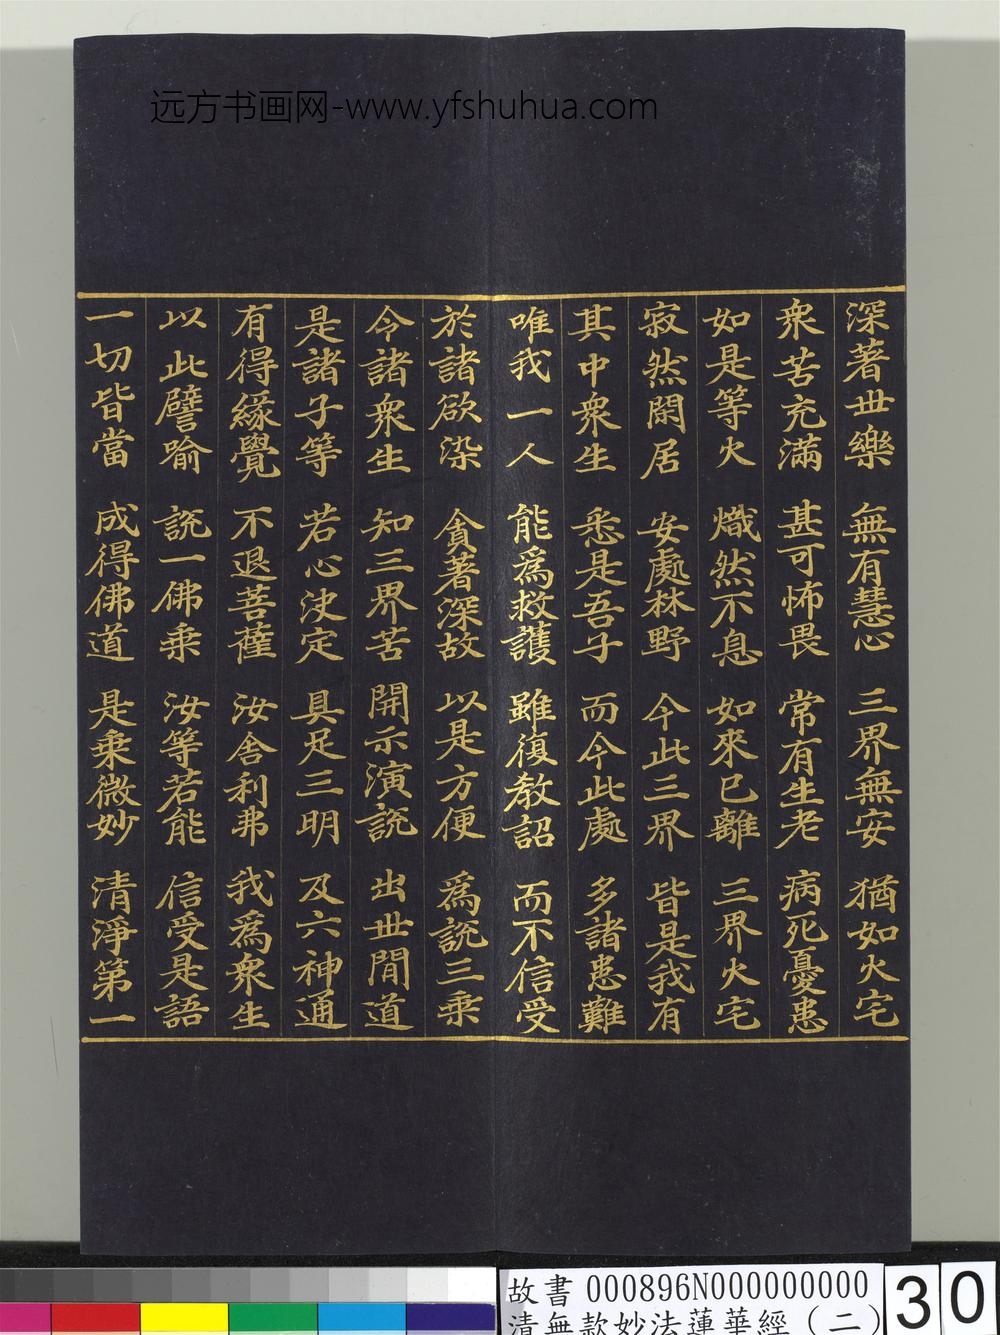 远方书画网-www.yfshuhua.com
深著世樂 無有慧心 三界無安 猶如火宅
衆苦充滿 甚可怖畏 常有生老 病死憂患
如是等火 熾然不息 如來已離 三界火宅
寂然閑居 安處林野 今此三界 皆是我有
其中衆生 悉是吾子 而今此處 多諸患難
唯我一人 能爲救護 雖復教詔 而不信受
於諸欲染 貪著深故 以是方便 爲說三乘
令諸衆生 知三界苦 開示演說 出世間道
是諸子等 若心决定 具足三明 及六神通
有得緣覺 不退菩薩 汝舍利弗 我爲衆生
以此譬喻 說一佛乘 汝等若能 信受是語
一切皆當 成得佛道 是乘微妙 清淨第一
故書 000896N000000000
清無款妙法蓮華經（二）
30